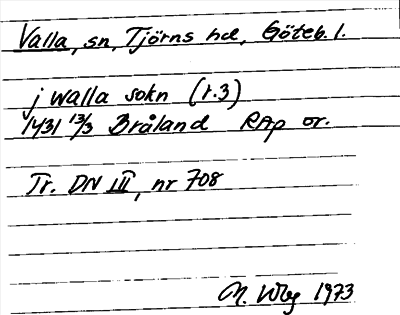 Valla, sn, Tjörns hd, Göteb. l.
j walla sokn (r.3)
1431 13/3 Bråland RAp or.
Tr. DN III, nr 708
1973